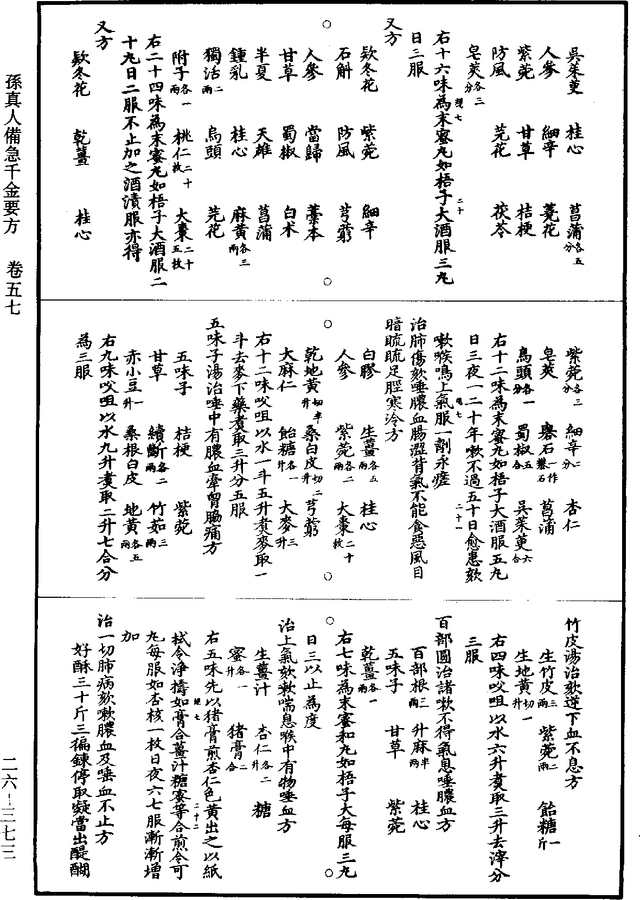 孫真人備急千金要方　卷五七
吳茱萸　桂心　菖蒲各五分
人參　細辛　莞花
紫菀　甘草　桔梗
防風　芫花　茯苓
皂莢各三分
右十六味為末蜜丸如梧子大酒服三丸
日三服
又方
款冬花　紫菀　細辛
石斛　防風　芎藭
人參　當歸　藁本
甘草　蜀椒　白朮
半夏　天雄　菖蒲
鍾乳　桂心　麻黃各三兩
獨活二兩　烏頭　芫花
附子各一兩　桃仁二十枚　大棗二十五枚
右二十四味為末蜜丸如梧子大酒服二
十丸日二服不止加之酒漬服亦得
又方
欵冬花　乾薑　桂心
紫菀各三分　細辛二分　杏仁
皂莢　礬石一作礜石　菖蒲
烏頭各一分　蜀椒五合　吳茱萸六合
右十二味為末蜜丸如梧子大酒服五丸
日三夜一二十年嗽不過五十日愈患欬
嗽喉鳴上氣服一劑永瘥
治肺傷欬唾膿血腸澀背氣不能食惡風目
暗䀮䀮足脛寒冷方
白膠　生薑各五兩　桂心
人參　紫菀各二兩　大棗二十枚
乾地黃切半升　桑白皮切二升　芎藭
大麻仁　飴糖各一升　大麥三升
右十二味㕮咀以水一斗五升煮麥取一
斗去麥下藥煮取三升分五服
五味子湯治唾中有膿血牽胸脇痛方
五味子　桔梗　紫菀
甘草　續斷各二兩　竹茹三兩
赤小豆一升　桑根白皮　地黃各五兩
右九味㕮咀以水九升煮取二升七合分
為三服
竹皮湯治欬逆下血不息方
生竹皮三兩　紫菀二兩　飴糖一斤
生地黃切一升
右四味㕮咀以水六升煮取三升去滓分
三服
百部圓治諸嗽不得氣息唾膿血方
百部根三兩　升麻半兩　桂心
五味子　甘草　紫菀
乾薑各一兩
右七味為末蜜和丸如梧子大每服三丸
日三以止為度
治上氣欬嗽喘息喉中有物唾血方
生薑汁　杏仁各二升　糖
蜜各一升　猪膏二合
右五味先以猪膏煎杏仁色黃出之以紙
拭令淨擣如膏合薑汁糖蜜等合煎令可
丸每服如杏核一枚日夜六七服漸漸增
加
治一切肺病欬嗽膿血及唾血不止方
好酥三十斤三徧鍊停取凝當出醍醐
二六-三七二